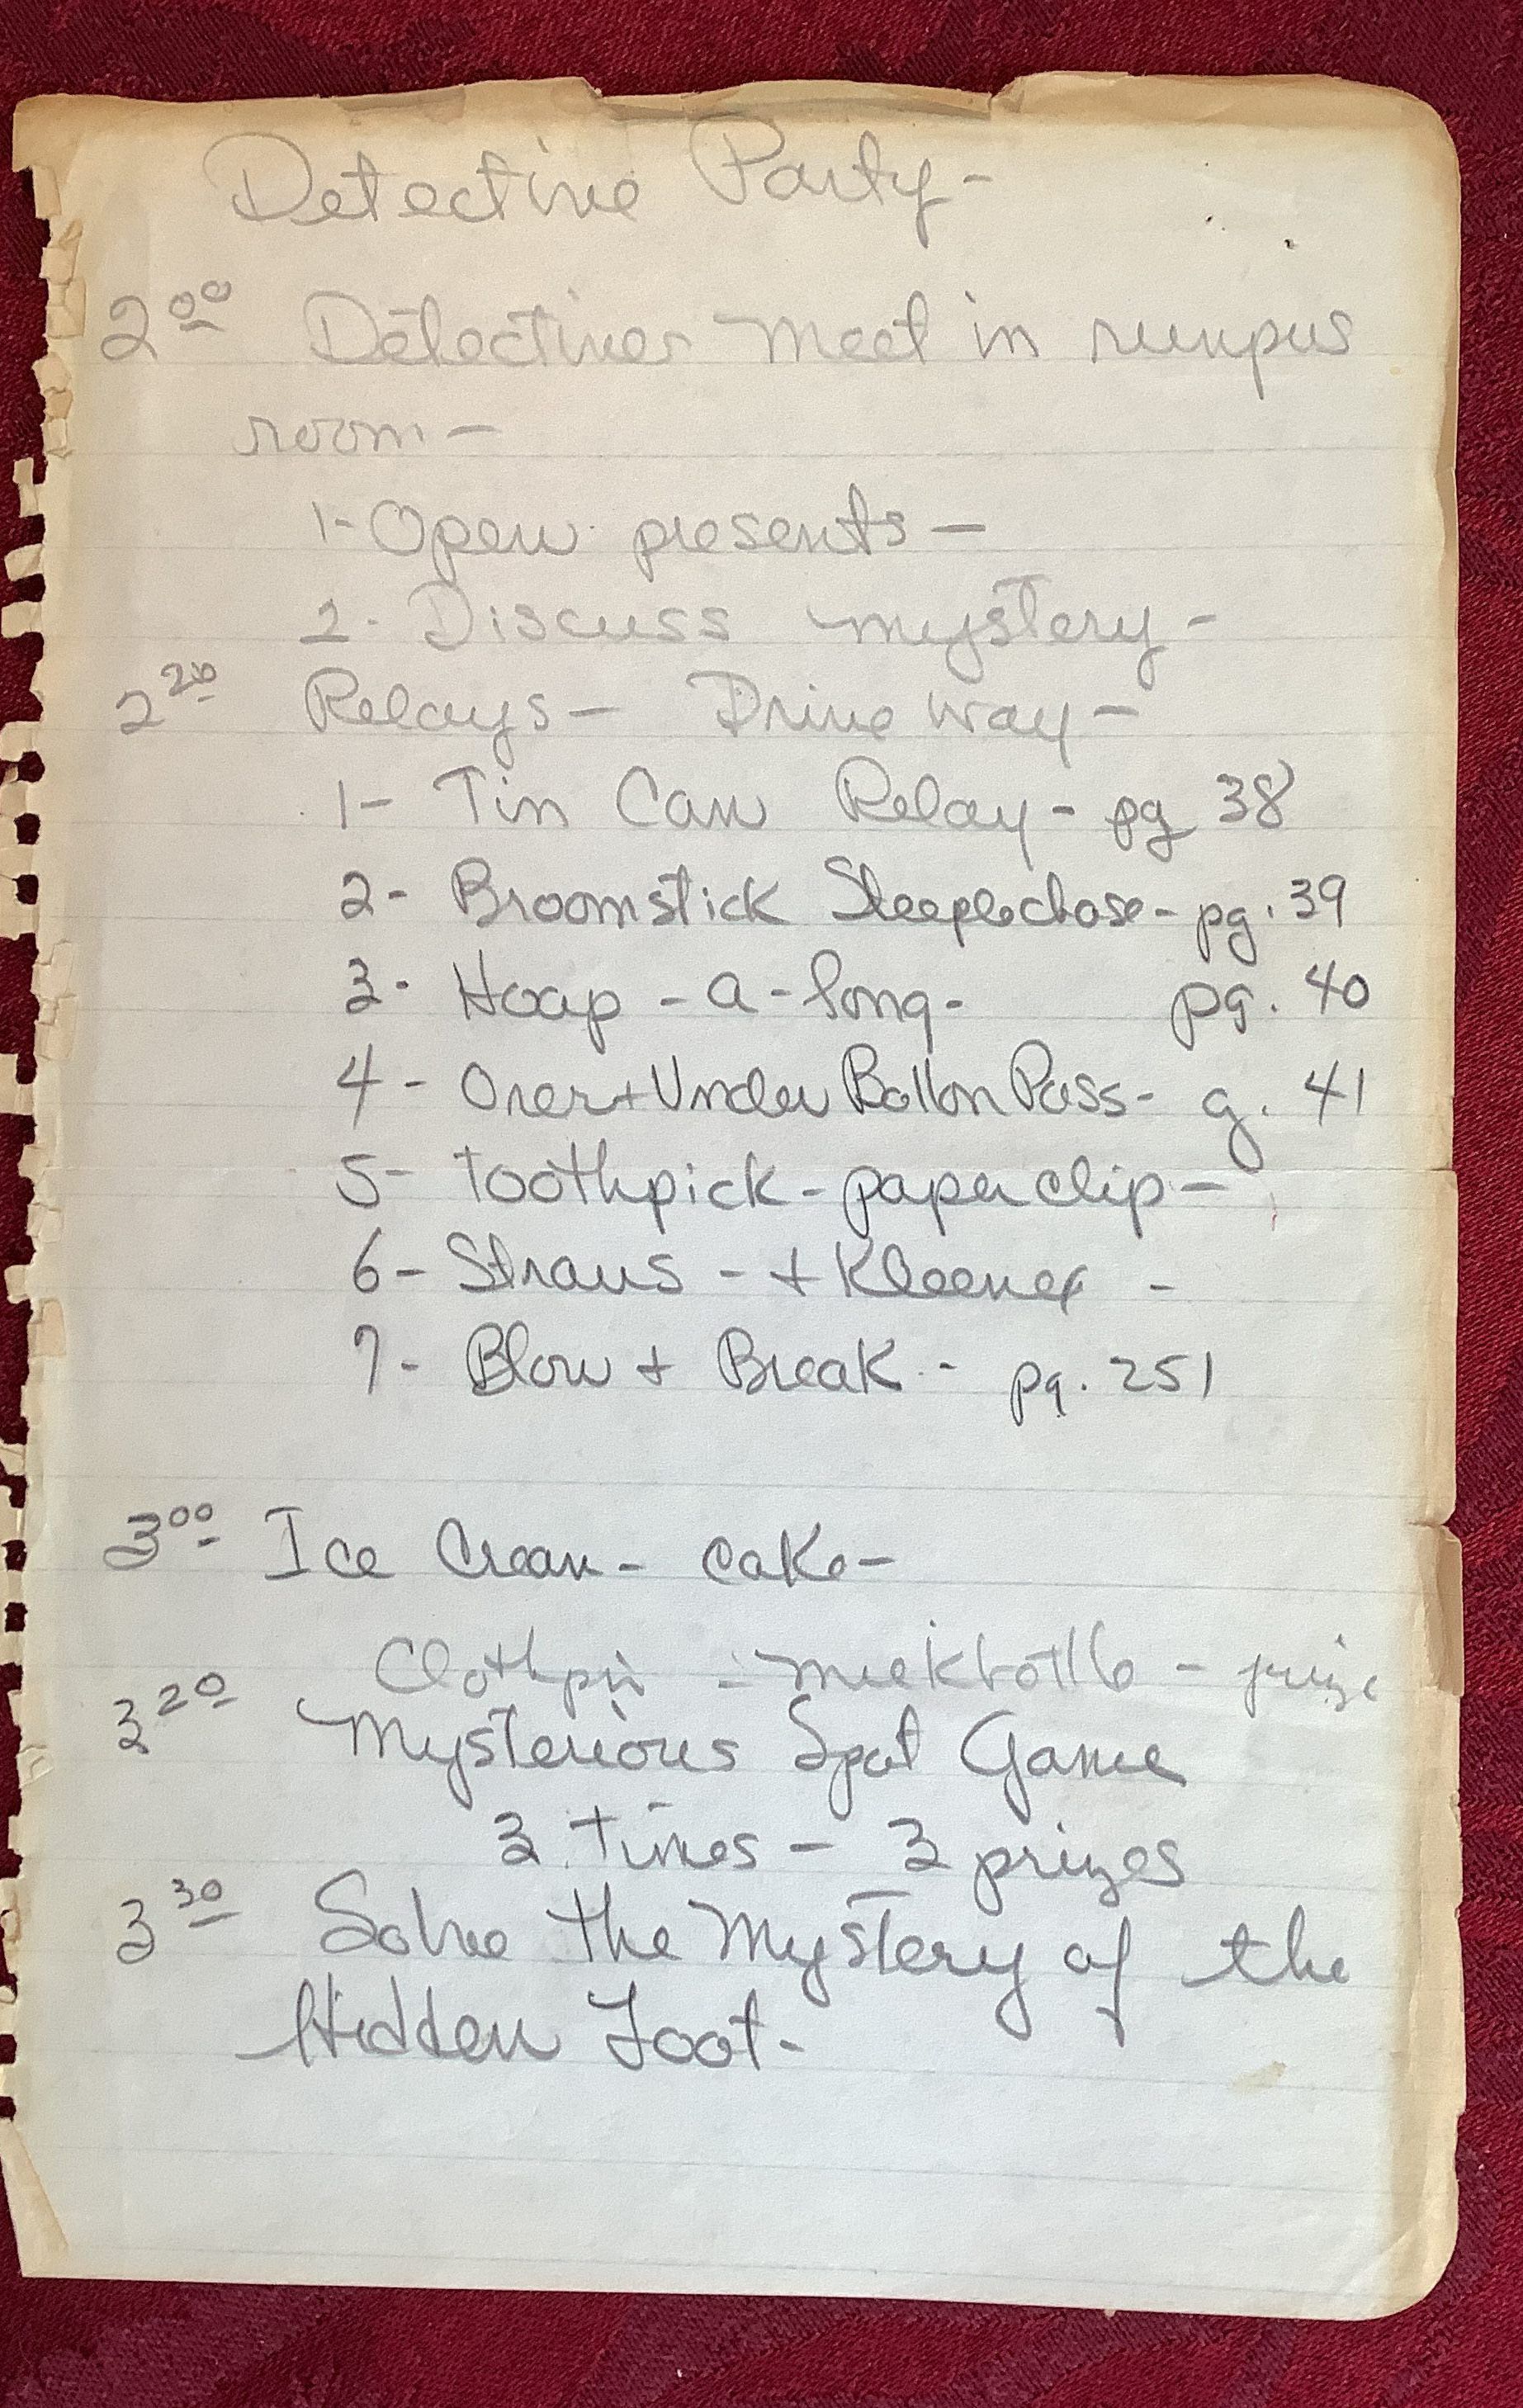 Detective Party-
2 00 Detectives meet in rumpus
room-
1- Open presents-
2. Discuss mystery-
2 20 Relays- Drive way-
1- Tin Can Relay- pg 38
2- Broomstick Steeplechase- pg. 39
3- Hoop-a-long- pg. 40
4- Over + Under Ballon Pass- g. 41
5- Toothpick-paper clip-
6- Straws - + Kleenex -
7- Blow + Break - pg. 251
3 00 Ice Cream- cake-
Clothpin - milkbottle - prize
3 20 Mysterious Spot Game
3 times - 3 prizes
3 30 Solve the Mystery of the
Hidden Loot-